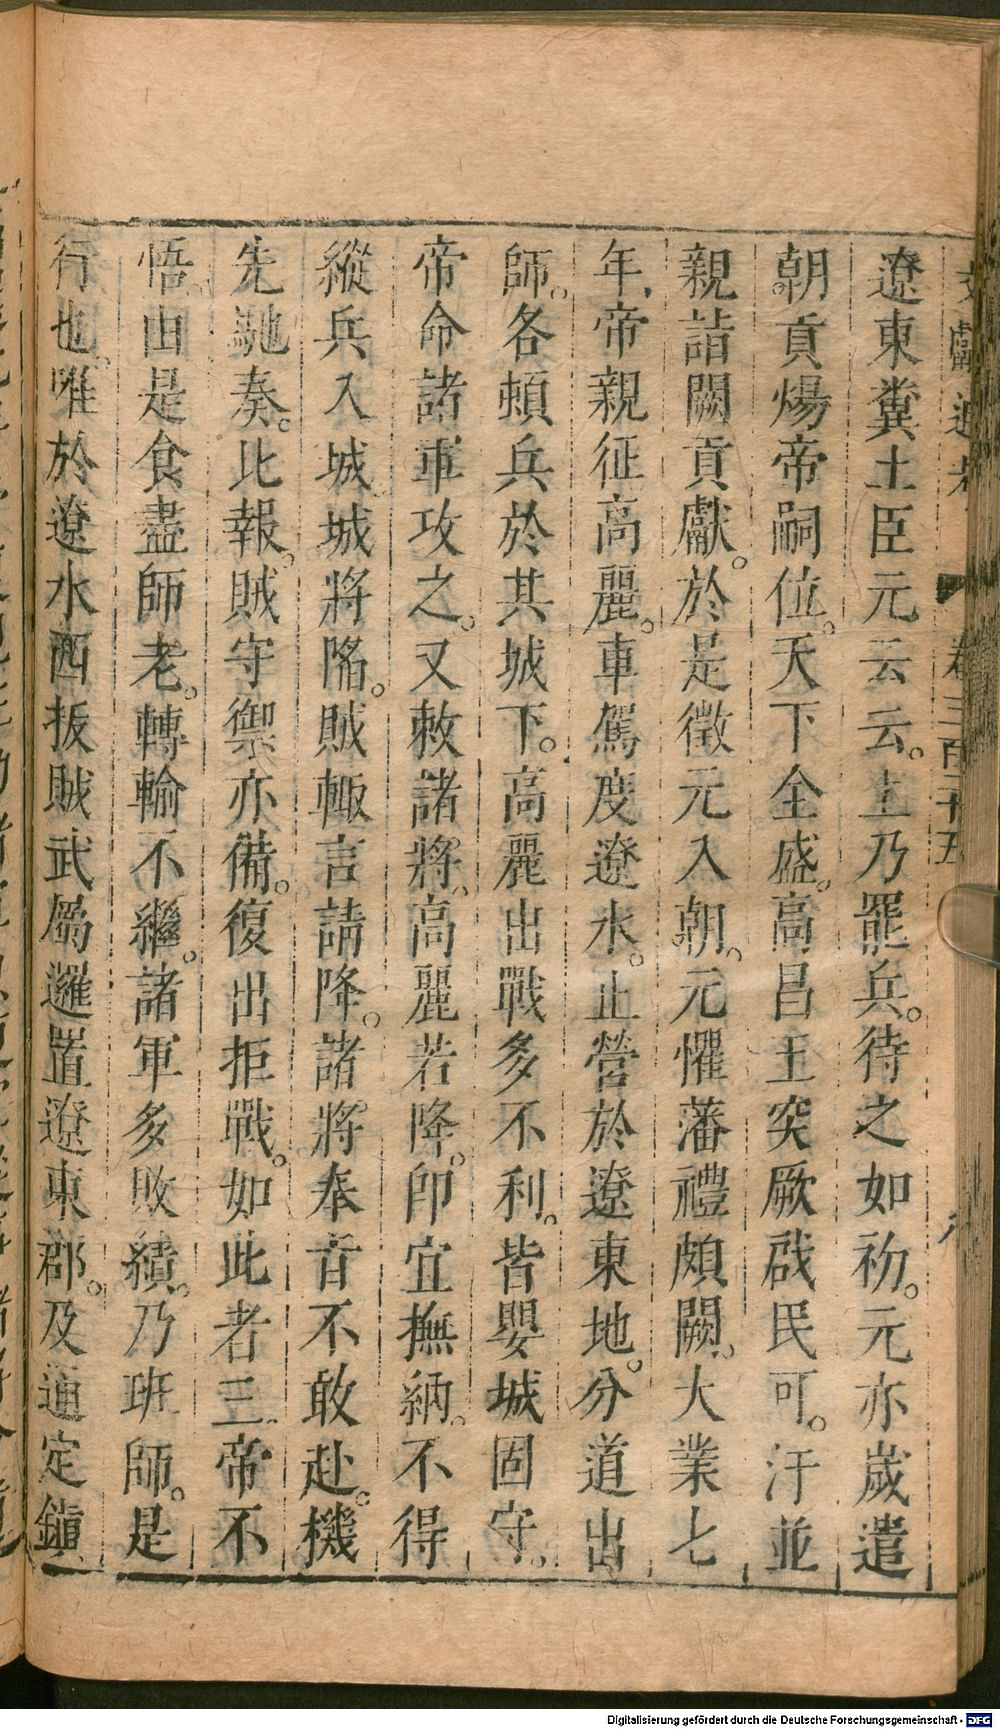 文獻通考 卷三百二十五
遼東糞土臣元云云。上乃罷兵。待之如初。元亦歲遣
朝貢煬帝嗣位。天下全盛。高昌王突厥啟民可。汗並
親詣闕貢獻。於是徵元入朝。元懼藩禮頗闕。大業七
年帝親征高麗。車駕度遼水。止營於遼東地。分道出
師。各頓兵於其城下。高麗出戰多不利。皆嬰城固守。
帝命諸軍攻之。又敕諸將。高麗若降。卽宜撫納。不得
縱兵入城城將陷。賊輙言請降。諸將奉音不敢赴。機
先馳奏。比報。賊守禦亦備。復出拒戰。如此者三。帝不
悟。由是食盡師老。轉輸不繼。諸軍多敗績。乃班師。是
行也。唯於遼水西拔賊武厲邏置遼東郡。及通定鎮
Digitalisierung gefördert durch die Deutsche Forschungsgemeinschaft - DFG